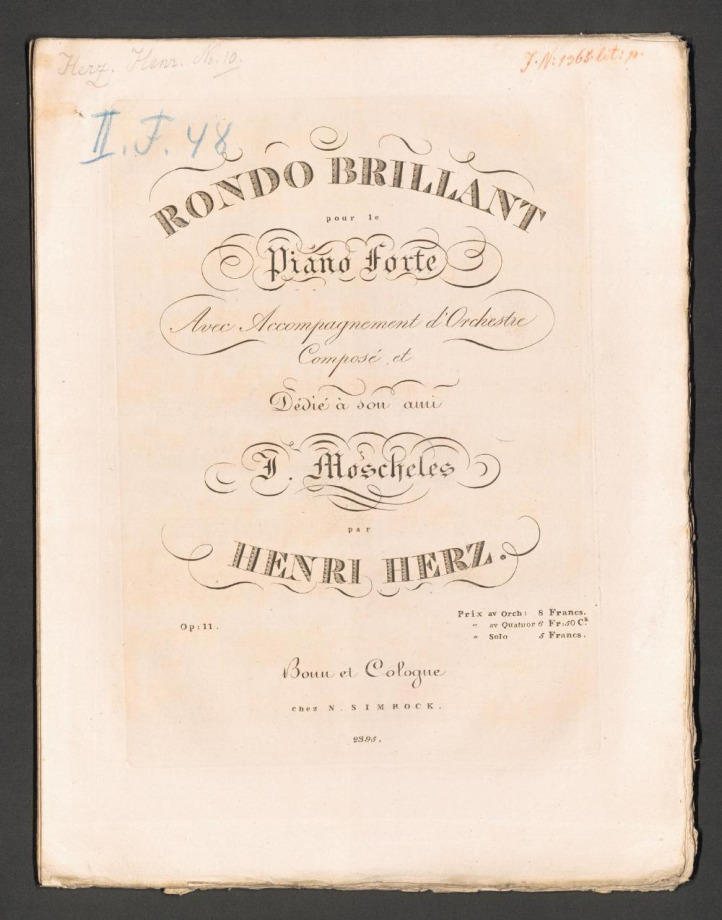 Herz. Henr. No. 10.
J. N: 1368 lit: p.
II. F. 48
RONDO BRILLANT
pour le
Piano Forte
Avec Accompagnement d'Orchestre
Composé et
Dédié à son ami
J. Moscheles
par
HENRI HERZ.
Op: 11.
Prix av Orch: 8 Francs.
" av Quatuor 6 Fr: 50 Cs
" Solo 5 Francs.
Bonn et Cologne
chez N. SIMROCK.
2395.